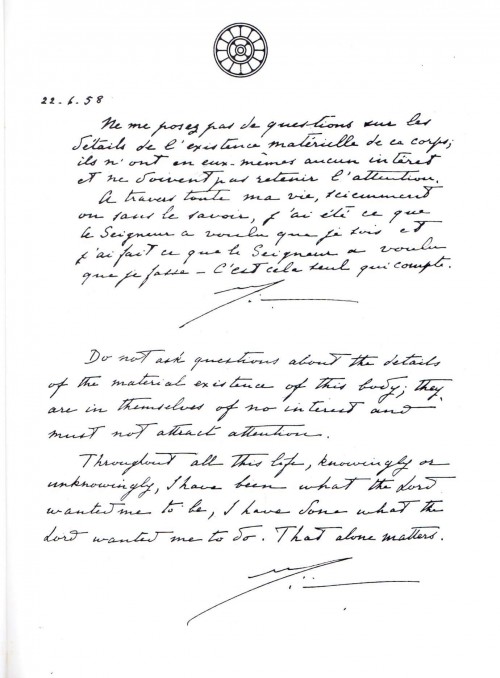 22.6.58
Ne me posez pas de questions sur les
détails de l'existence matérielle de ce corps;
ils n'ont en eux-mêmes aucun intéret
et ne doivent pas retenir l'attention.
A travers toute ma vie, sciemment
ou sans le savoir, j'ai été ce que
le Seigneur a voulu que je sois et
j'ai fait ce que le Seigneur a voulu
que je fasse – C'est cela seul qui compte.
Do not ask questions about the details
of the material existence of this body; they
are in themselves of no interest and
must not attract attention.
Throughout all this life, knowingly or
unknowingly, I have been what the Lord
wanted me to be, I have done what the
Lord wanted me to do. That alone matters.